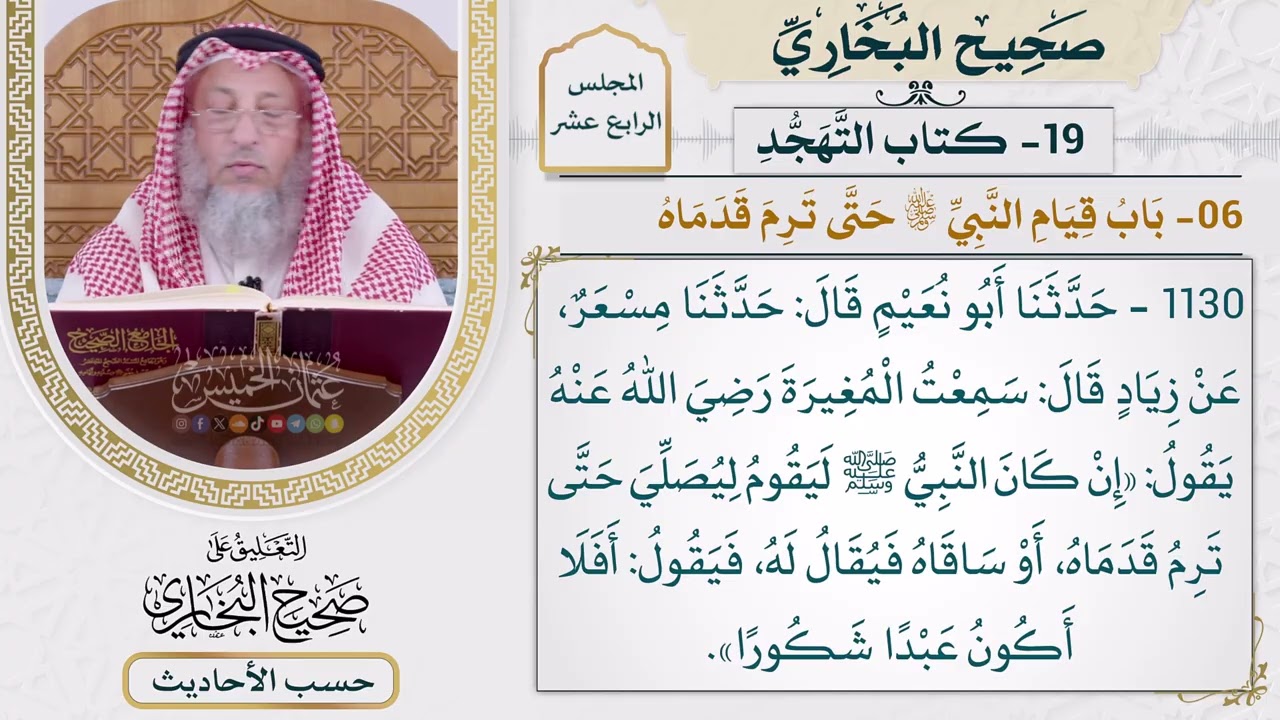 صَحِيح البُخَارِيِّ
المجلس
الرابع عشر
19- كتاب التَّهَجُّدِ
06- بَابُ قِيَامِ النَّبِيِّ ﷺ حَتَّى تَرِمَ قَدَمَاهُ
1130 - حَدَّثَنَا أَبُو نُعَيْمٍ قَالَ: حَدَّثَنَا مِسْعَرٌ،
عَنْ زِيَادٍ قَالَ: سَمِعْتُ الْمُغِيرَةَ رَضِيَ اللهُ عَنْهُ
يَقُولُ: «إِنْ كَانَ النَّبِيُّ ﷺ لَيَقُومُ لِيُصَلِّيَ حَتَّى
تَرِمُ قَدَمَاهُ، أَوْ سَاقَاهُ فَيُقَالُ لَهُ، فَيَقُولُ: أَفَلَا
أَكُونُ عَبْدًا شَكُورًا».
الجامع الصحيح
عثمان الخميس
التَّعْلِيقُ عَلَى
صَحِيحِ البُخَارِي
حسب الأحاديث